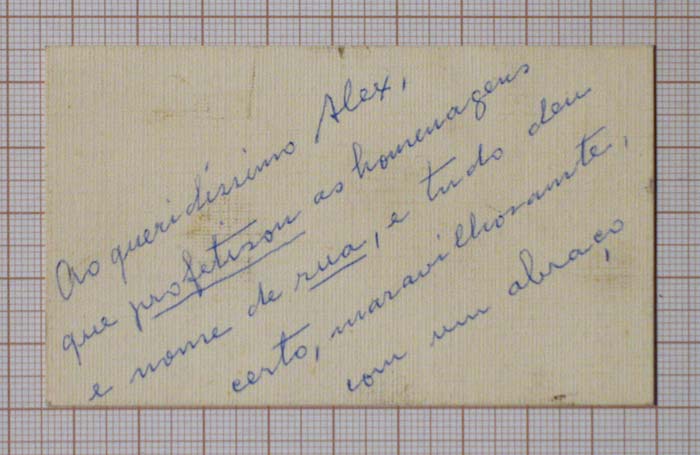 Ao queridíssimo Alex,
que profetisou as homenagens
e nome de rua, e tudo deu
certo, maravilhosamte,
com um abraço